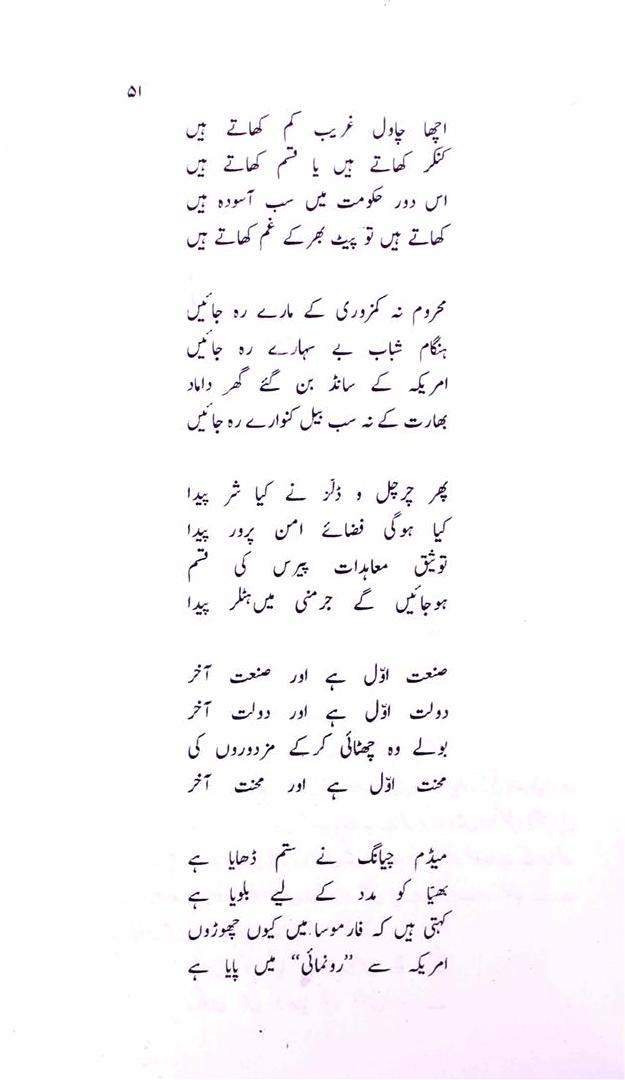 ۵۱
اچھا چاول غریب کم کھاتے ہیں
کنکر کھاتے ہیں یا قسم کھاتے ہیں
اس دور حکومت میں سب آسودہ ہیں
کھاتے ہیں تو پیٹ بھر کے غم کھاتے ہیں
محروم نہ کمزوری کے مارے رہ جائیں
ہنگام شباب بے سہارے رہ جائیں
امریکہ کے سانڈ بن گئے گھر داماد
بھارت کے نہ سب بیل کنوارے رہ جائیں
پھر چرچل و ڈلّز نے کیا شر پیدا
کیا ہوگی فضائے امن پرور پیدا
توثیق معاہدات پیرس کی قسم
ہوجائیں گے جرمنی میں ہٹلر پیدا
صنعت اوّل ہے اور صنعت آخر
دولت اوّل ہے اور دولت آخر
بولے وہ چھٹائی کرکے مزدوروں کی
محنت اوّل ہے اور محنت آخر
میڈم چیانگ نے ستم ڈھایا ہے
بھیّا کو مدد کے لیے بلویا ہے
کہتی ہیں کہ فارموسا میں کیوں چھوڑوں
امریکہ سے ”رونمائی“ میں پایا ہے